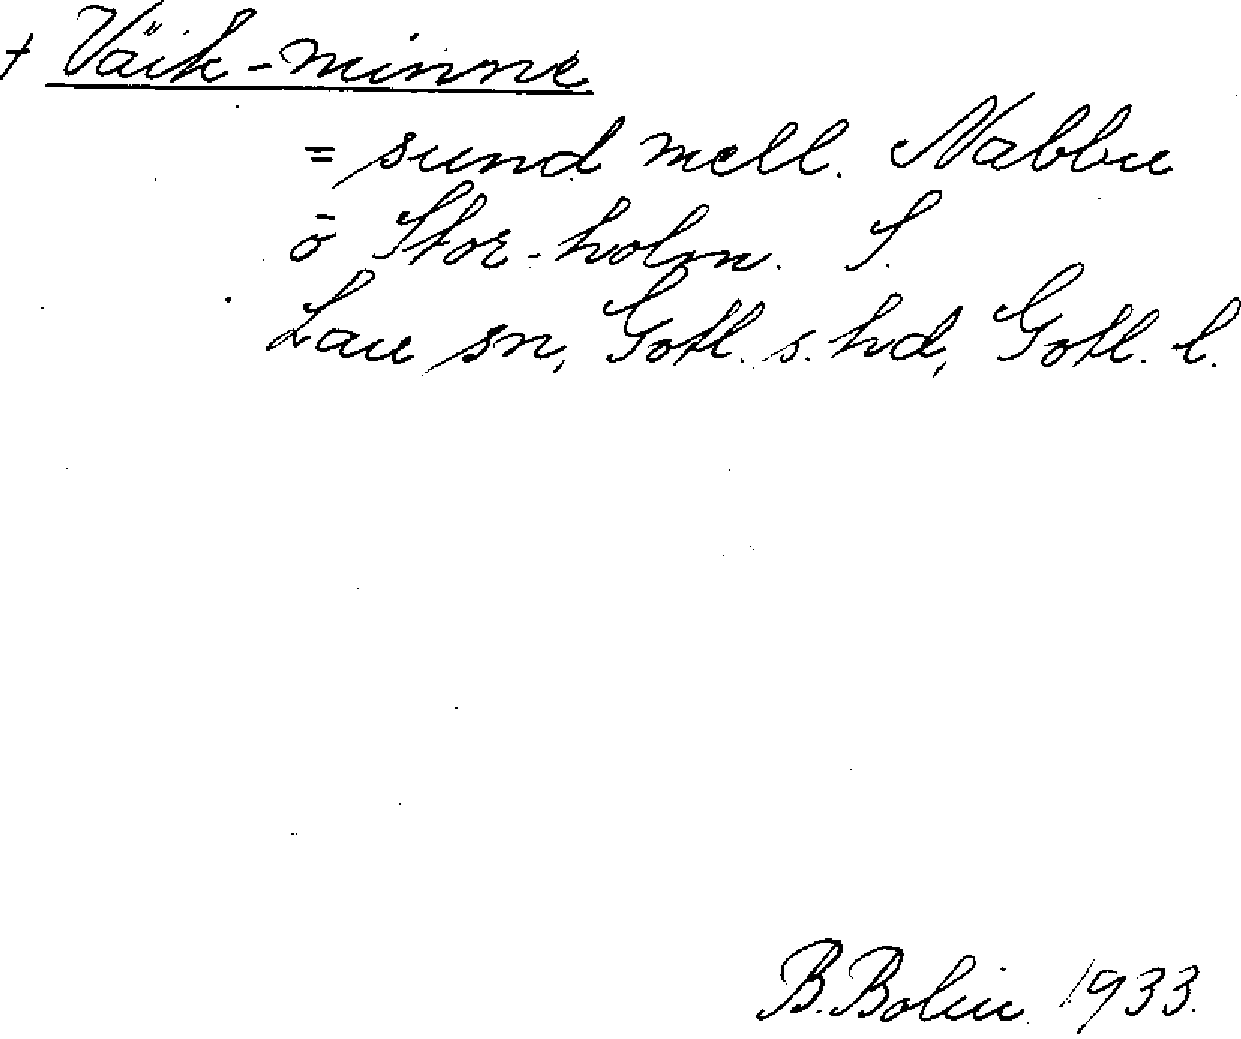 + Väik-minne
= sund mell. Nabbu
ō Stor-holm. S.
Lau sn, Gotl. s. hd, Gotl. l.
B. Bolin 1933.